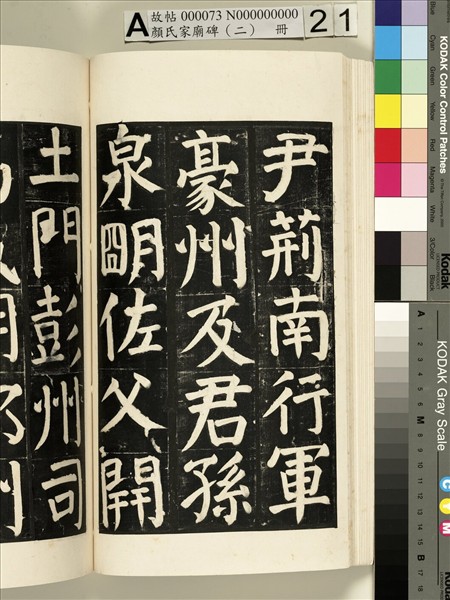 A 故帖 000073 N000000000 21
顏氏家廟碑（二） 冊
尹荊南行軍
豪州及君孫
泉朙佐父開
土門彭州司
KODAK Color Control Patches
Blue Cyan Green Yellow Red Magenta White 3/Color Black
Kodak
KODAK Gray Scale
C Y M
A 1 2 3 4 5 6 M 8 9 10 11 12 13 14 15 B 17 18
Kodak